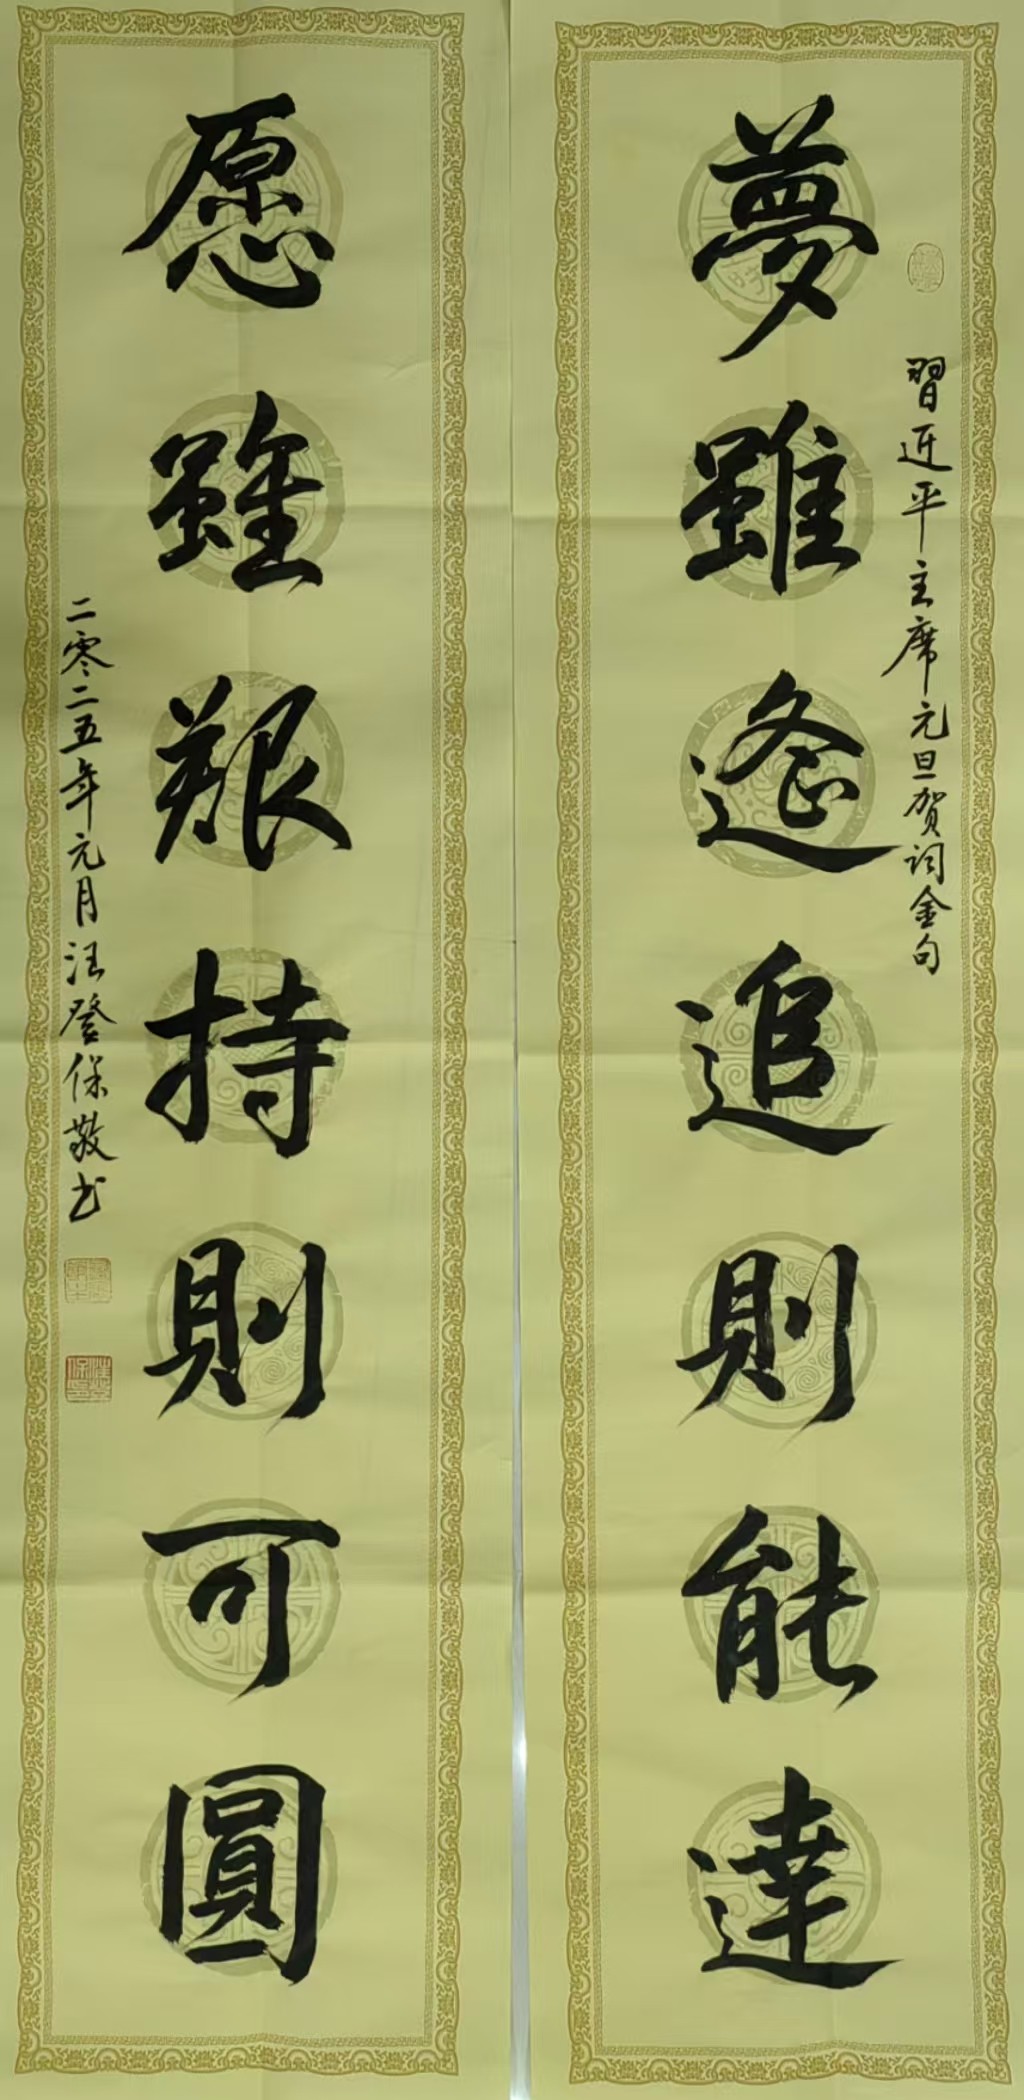 習近平主席元旦贺词金句
夢雖遙追則能達
愿雖艱持則可圓
二零二五年元月汪登保敬书